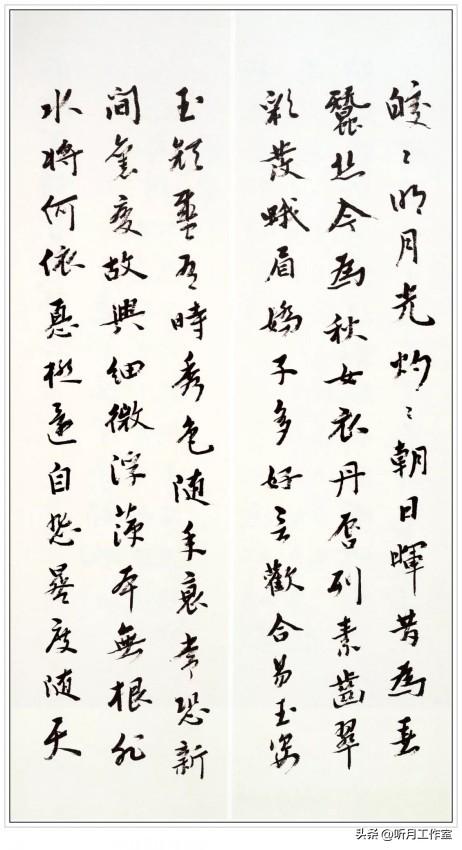 皎〻明月光灼〻朝日暉昔為春
蠶丝今為秋女衣丹唇列素齒翠
彩發蛾眉嬌子多好言歡合易玉姿
玉顏盛有時秀色随年衰常恐新
間舊變故興細微浮萍本無根非
水將何依極還自晷度随天
头条 @听月工作室